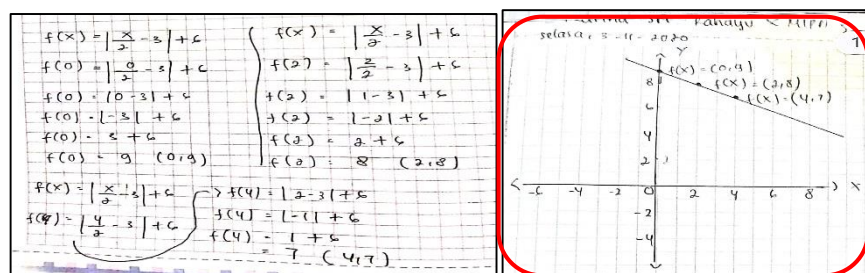 f(x) = |x/2 - 3| + 6
f(0) = |0/2 - 3| + 6
f(0) = |0 - 3| + 6
f(0) = |-3| + 6
f(0) = 3 + 6
f(0) = 9 (0,9)
f(x) = |x/2 - 3| + 6
f(2) = |2/2 - 3| + 6
f(2) = |1 - 3| + 6
f(2) = |-2| + 6
f(2) = 2 + 6
f(2) = 8 (2,8)
f(x) = |x/2 - 3| + 6
f(4) = |4/2 - 3| + 6
f(4) = |2 - 3| + 6
f(4) = |-1| + 6
f(4) = 1 + 6
= 7 (4,7)
Rahayu < MIPA
selasa, 3-11-2020
1
Y
f(x) = (0,9)
f(x) = (2,8)
f(x) = (4,7)
8
6
4
2
-6 -4 -2 0 2 4 6 8 X
-2
-4